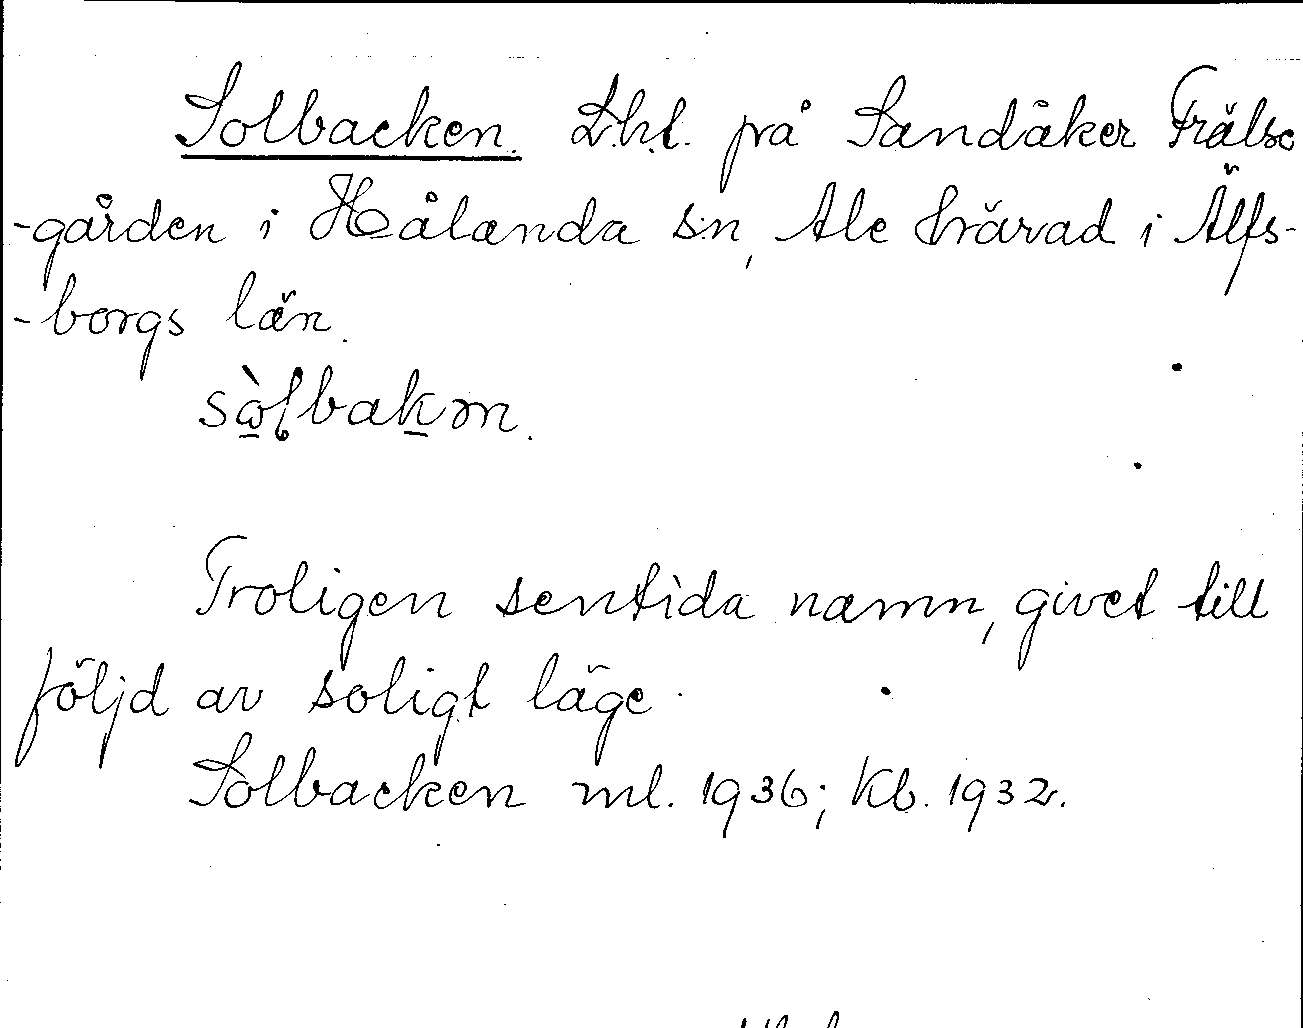 Solbacken. Lht. på Sandåker Frälse
-gården i Hålanda sn, Ale härad i Älfs-
-borgs län.
sò̱ɭbaḵm.
Troligen sentida namn, givet till
följd av soligt läge.
Solbacken ml. 1936; Kb. 1932.